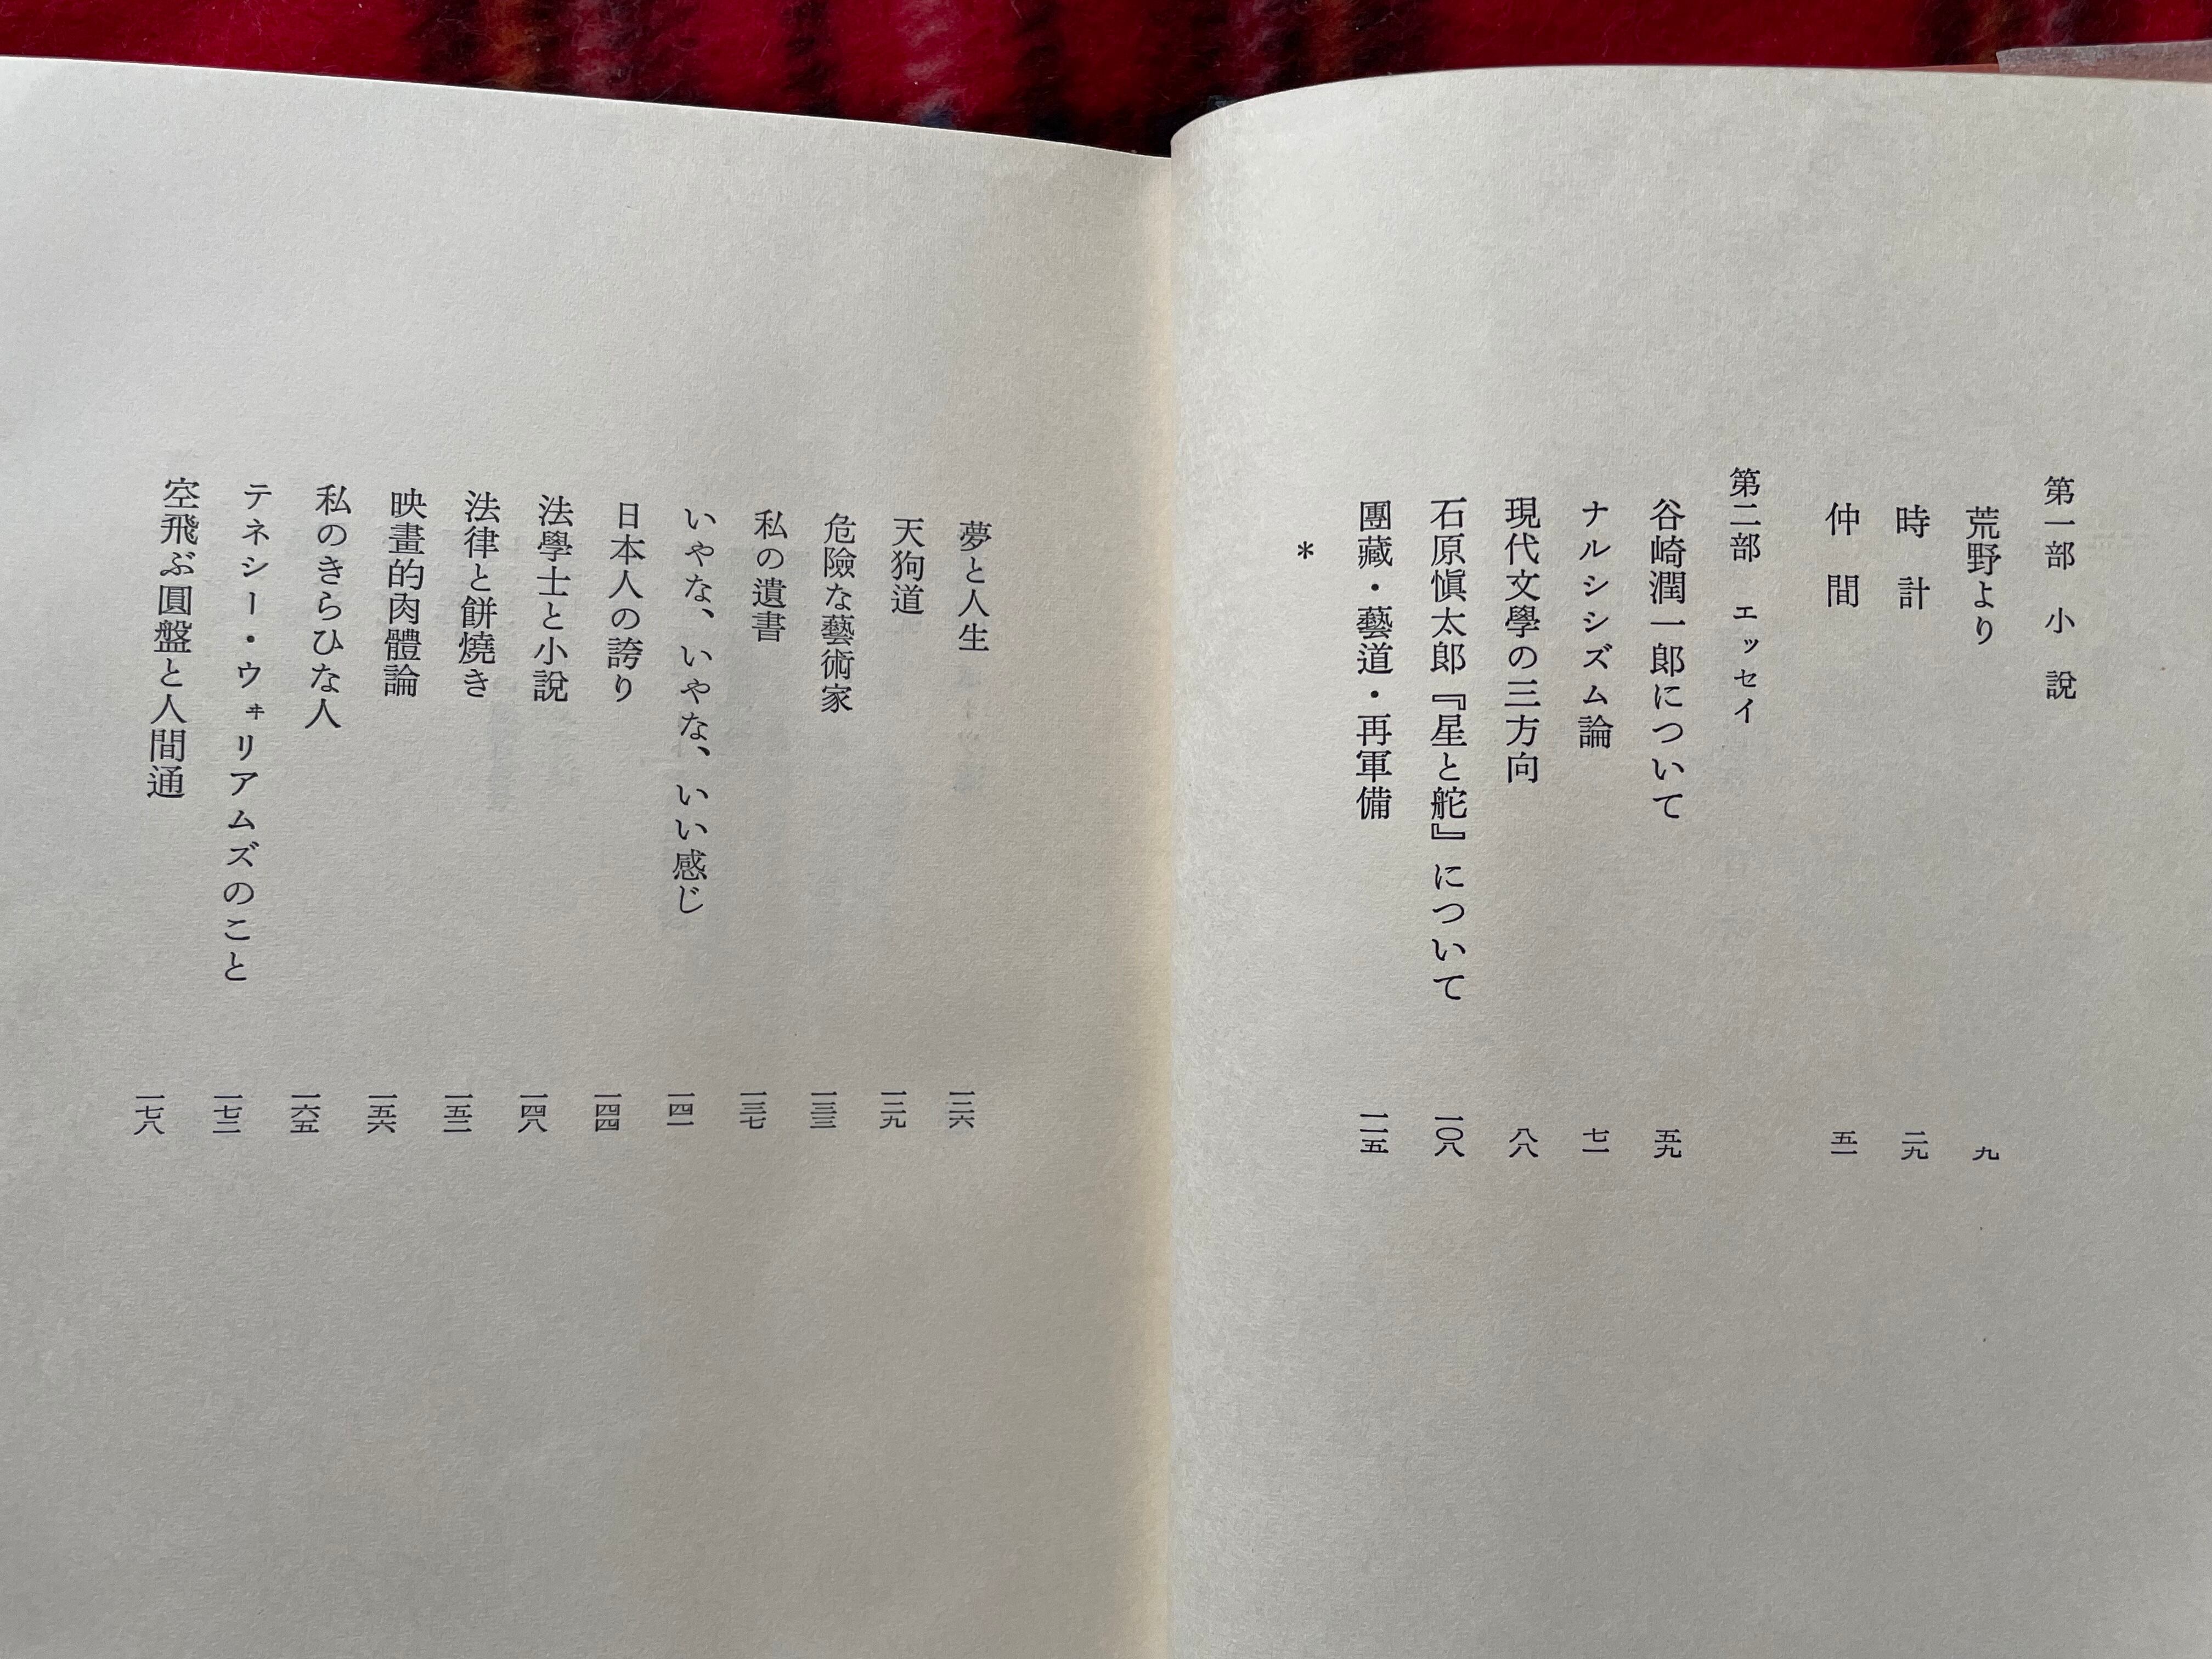 第一部　小　說
荒野より　九
時　計　二九
仲　間　五一
第二部　エッセイ
谷崎潤一郎について　五九
ナルシシズム論　七一
現代文學の三方向　八八
石原愼太郎『星と舵』について　一〇八
團藏・藝道・再軍備　一一五
＊
夢と人生　一二六
天狗道　一二九
危險な藝術家　一三三
私の遺書　一三七
いやな、いやな、いい感じ　一四一
日本人の誇り　一四四
法學士と小說　一四八
法律と餅燒き　一五二
映畫的肉體論　一五六
私のきらひな人　一六五
テネシー・ウヰリアムズのこと　一七三
空飛ぶ圓盤と人間通　一七八